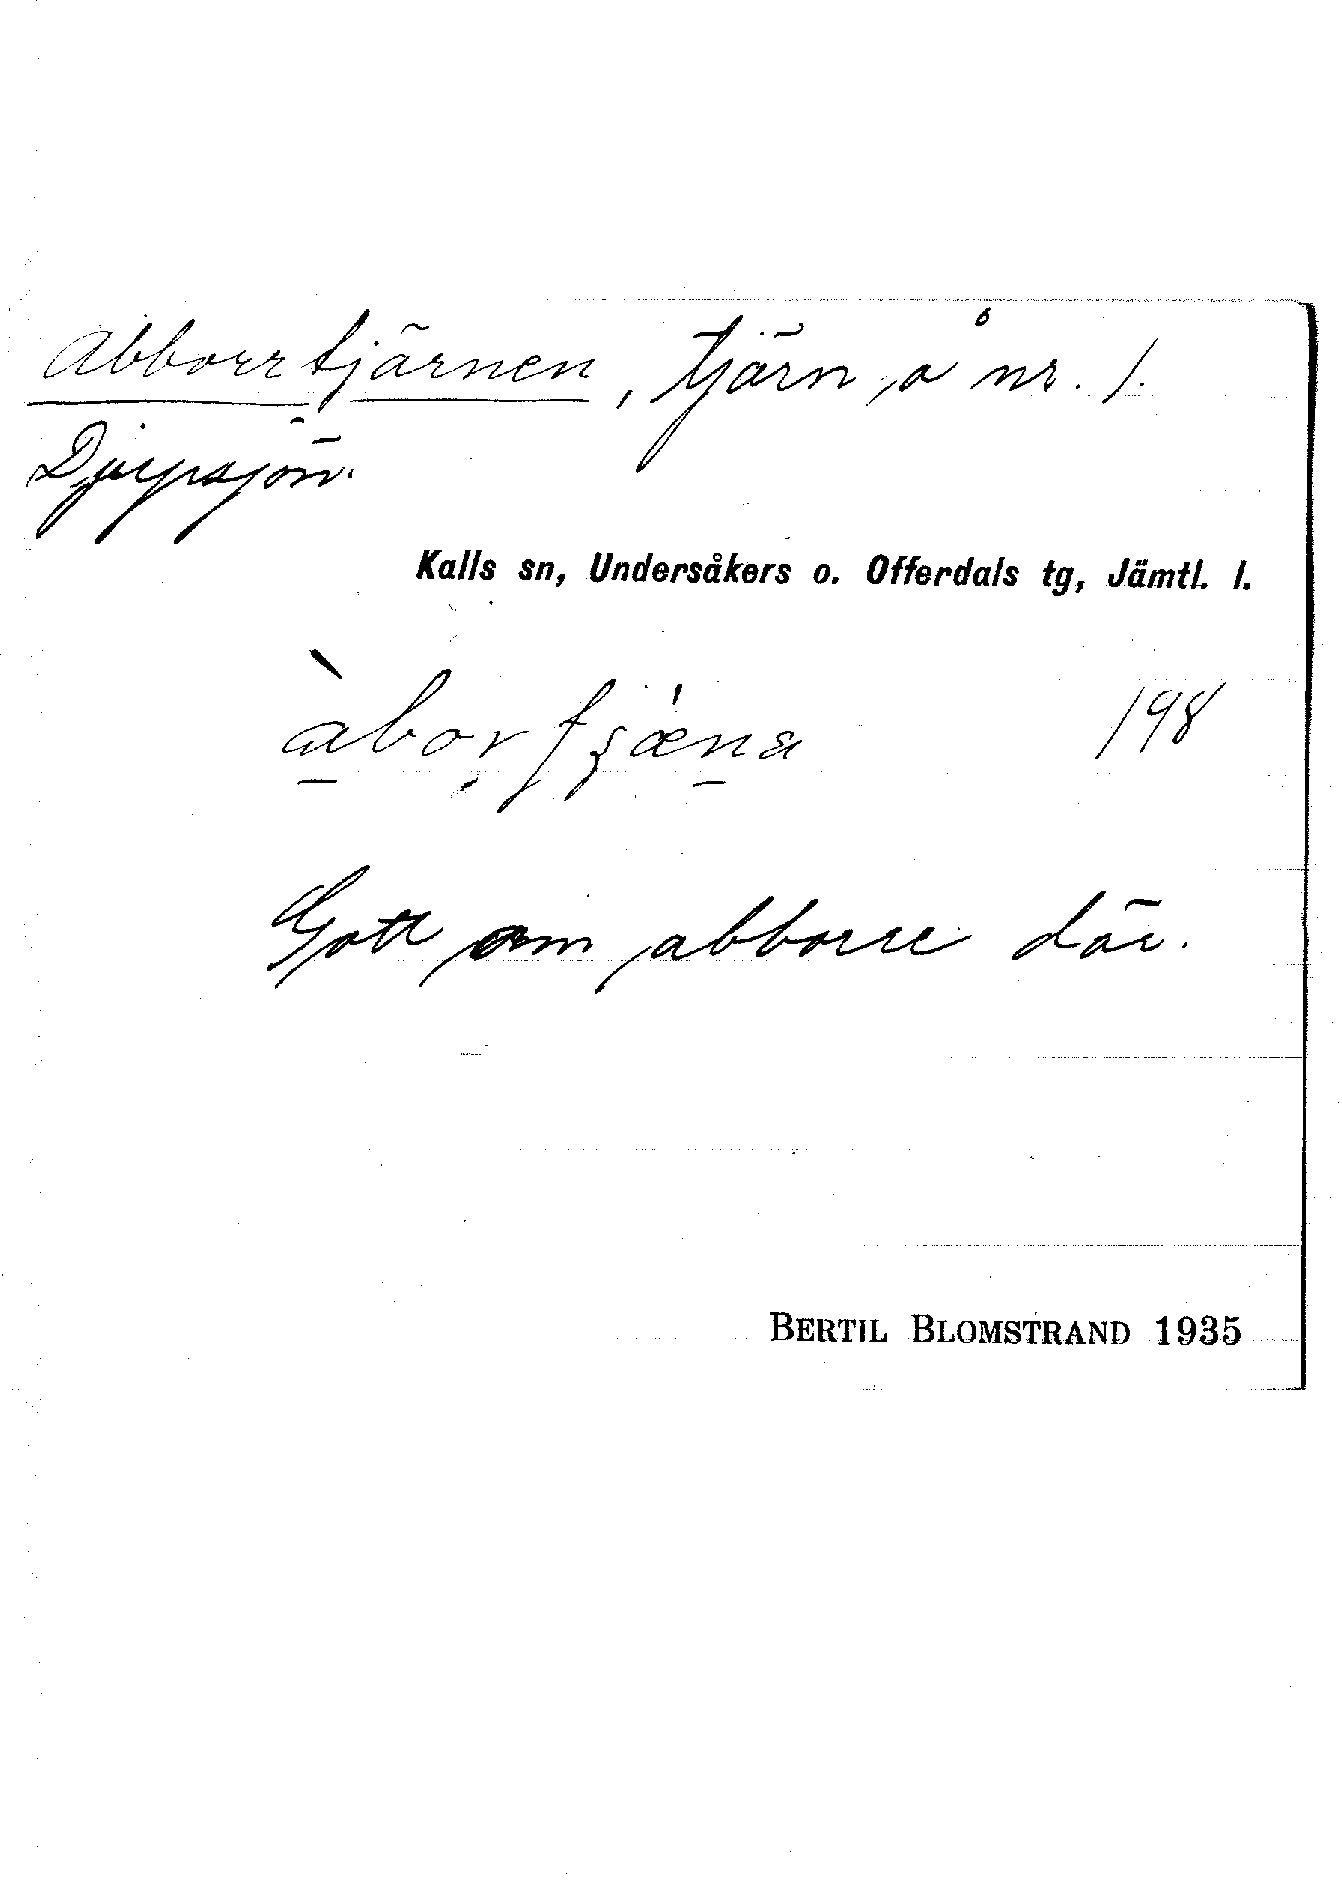 Abborrtjärnen, tjärn å nr. 1.
Djupsjön.
Kalls sn, Undersåkers o. Offerdals tg, Jämtl. l.
198
Gott om abborre där.
BERTIL BLOMSTRAND 1935